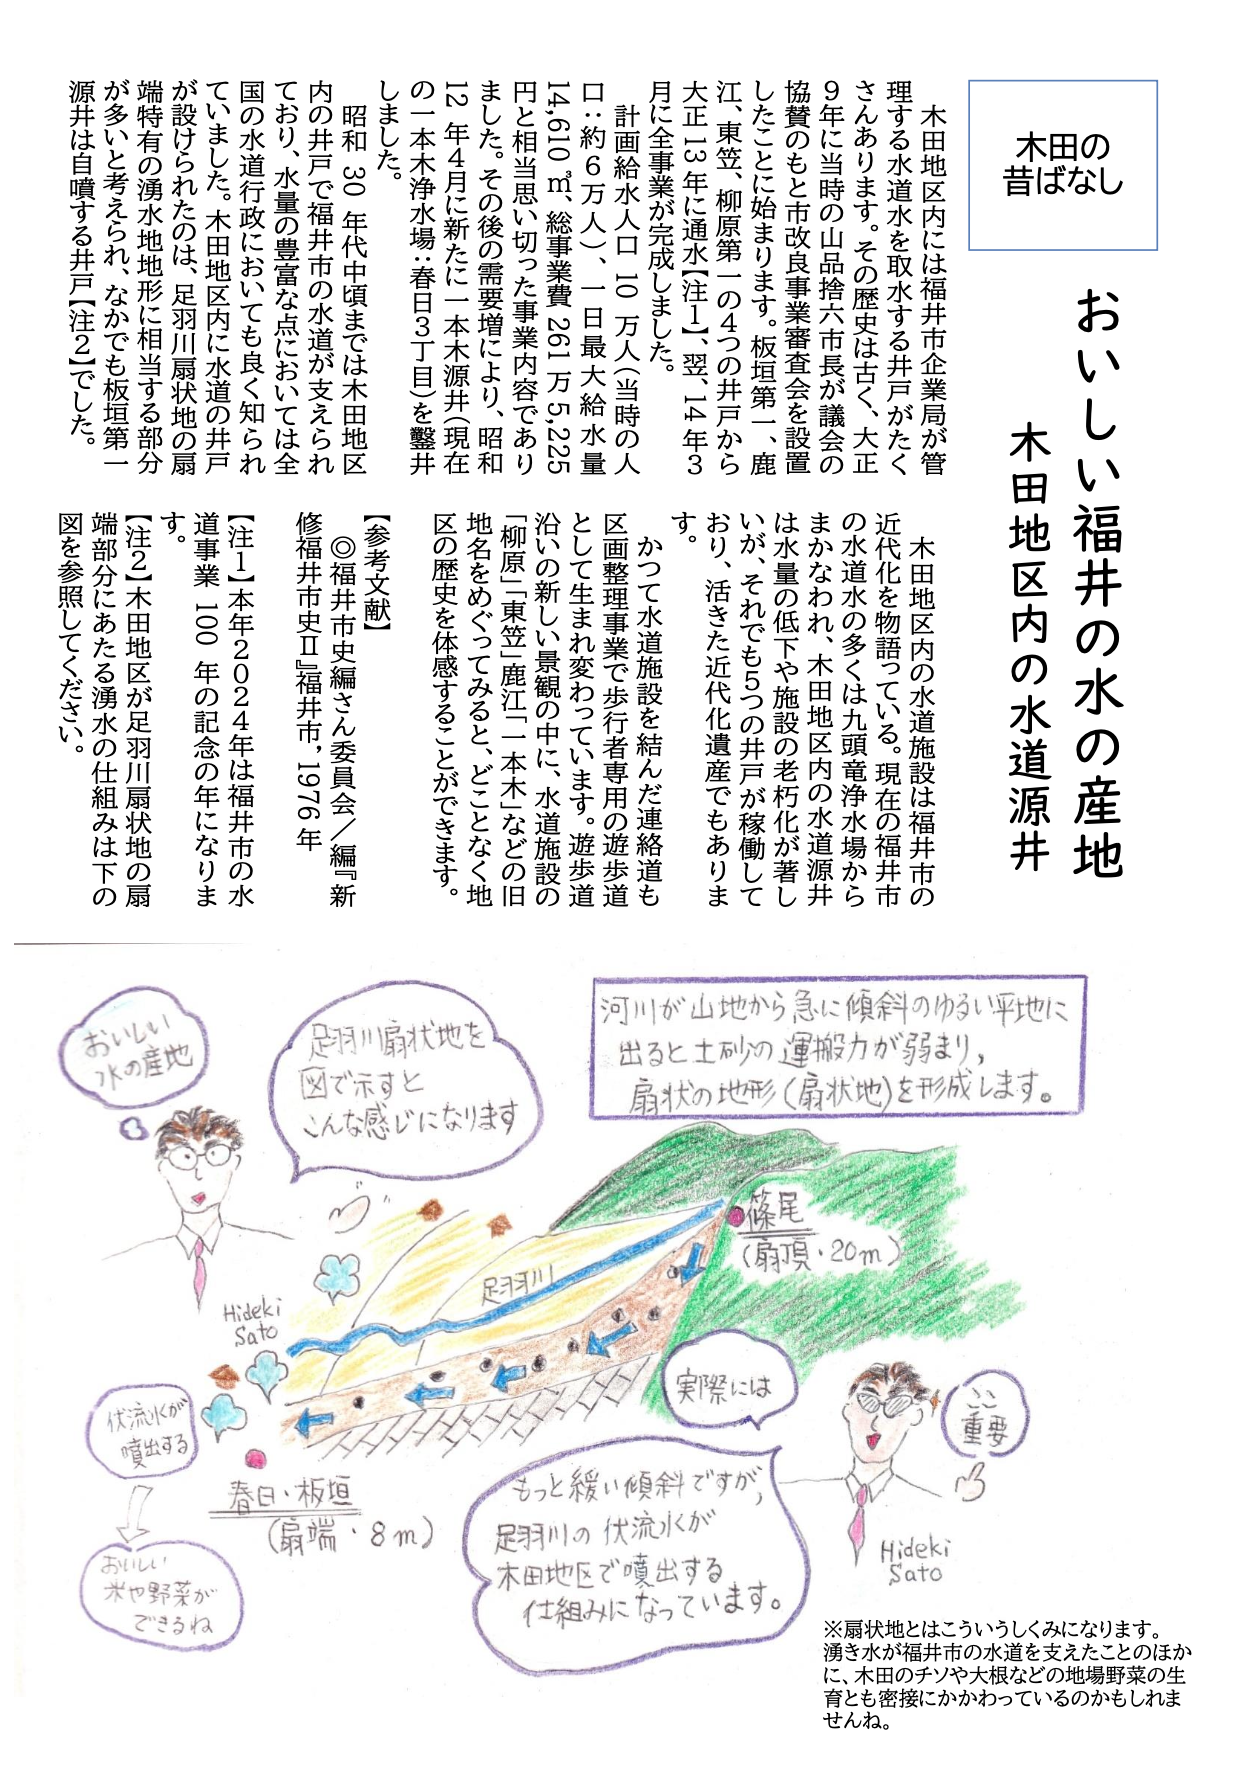 木田の
昔ばなし
おいしい福井の水の産地
木田地区内の水道源井
木田地区内には福井市企業局が管
理する水道水を取水する井戸がたく
さんあります。その歴史は古く、大正
9年に当時の山品捨六市長が議会の
協賛のもと市改良事業審査会を設置
したことに始まります。板垣第一、鹿
江、東笠、柳原第一の4つの井戸から
大正13年に通水【注1】、翌、14年3
月に全事業が完成しました。
計画給水人口 10 万人(当時の人
口：約6万人)、一日最大給水量
14,610㎥、総事業費261万5,225
円と相当思い切った事業内容であり
ました。その後の需要増により、昭和
12年4月に新たに一本木源井(現在
の一本木浄水場：春日3丁目)を鑿井
しました。
昭和 30 年代中頃までは木田地区
内の井戸で福井市の水道が支えられ
ており、水量の豊富な点においては全
国の水道行政においても良く知られ
ていました。木田地区内に水道の井戸
が設けられたのは、足羽川扇状地の扇
端特有の湧水地地形に相当する部分
が多いと考えられ、なかでも板垣第一
源井は自噴する井戸【注2】でした。
木田地区内の水道施設は福井市の
近代化を物語っている。現在の福井市
の水道水の多くは九頭竜浄水場から
まかなわれ、木田地区内の水道源井
は水量の低下や施設の老朽化が著し
いが、それでも5つの井戸が稼働して
おり、活きた近代化遺産でもありま
す。
かつて水道施設を結んだ連絡道も
区画整理事業で歩行者専用の遊歩道
として生まれ変わっています。遊歩道
沿いの新しい景観の中に、水道施設の
「柳原」「東笠」「鹿江」「一本木」などの旧
地名をめぐってみると、どことなく地
区の歴史を体感することができます。
【参考文献】
◎福井市史編さん委員会／編『新
修福井市史Ⅱ』福井市,1976年
【注1】本年2024年は福井市の水
道事業 100 年の記念の年になりま
す。
【注2】木田地区が足羽川扇状地の扇
端部分にあたる湧水の仕組みは下の
図を参照してください。
おいしい
水の産地
足羽川扇状地を
図で示すと
こんな感じになります
河川が山地から急に傾斜のゆるい平地に
出ると土砂の運搬力が弱まり，
扇状の地形(扇状地)を形成します。
篠尾
(扇頂・20m)
足羽川
Hideki
Sato
実際には
ここ
重要
伏流水が
噴出する
春日・板垣
(扇端・8m)
もっと緩い傾斜ですが，
足羽川の伏流水が
木田地区で噴出する
仕組みになっています。
Hideki
Sato
おいしい
米や野菜が
できるね
※扇状地とはこういうしくみになります。
湧き水が福井市の水道を支えたことのほか
に、木田のチソや大根などの地場野菜の生
育とも密接にかかわっているのかもしれま
せんね。